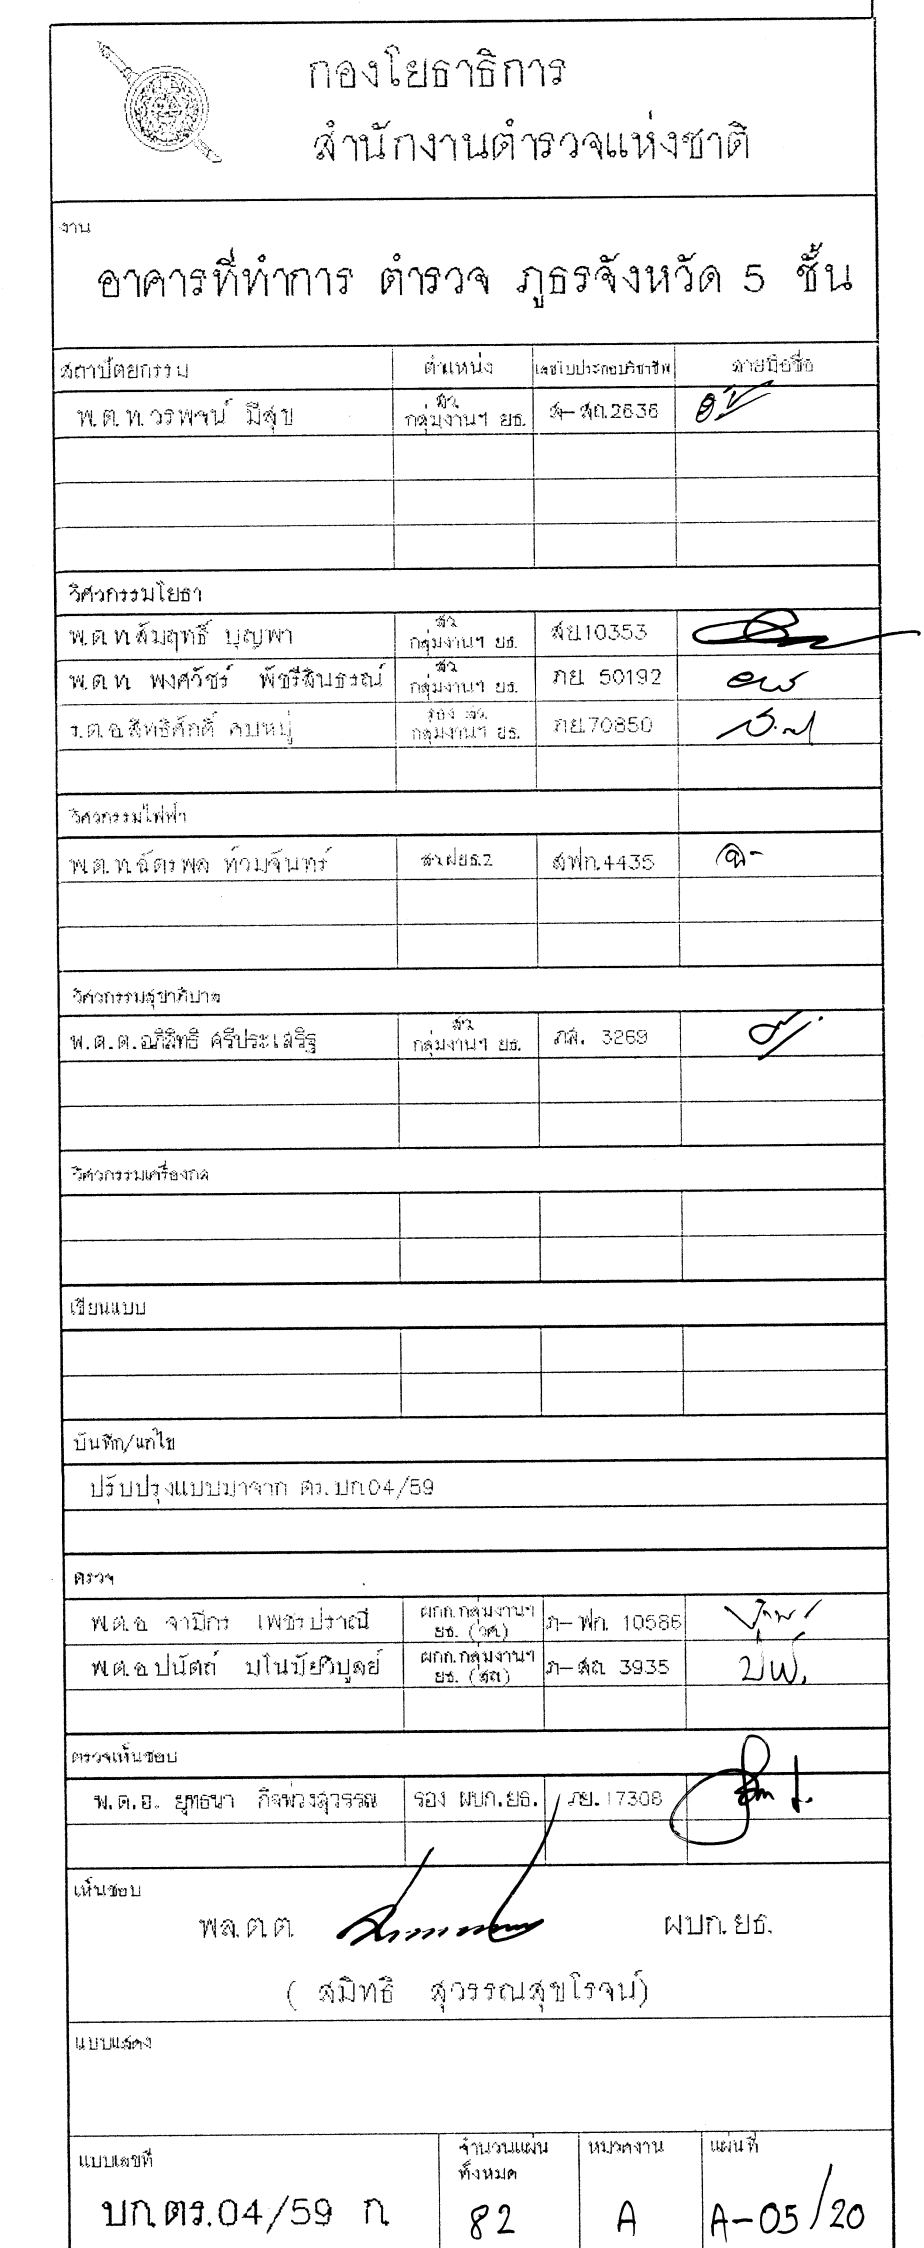 กองโยธาธิการ
สำนักงานตำรวจแห่งชาติ
งาน
อาคารที่ทำการ ตำรวจ ภูธรจังหวัด 5 ชั้น
สถาปัตยกรรม ตำแหน่ง เลขใบประกอบวิชาชีพ ลายมือชื่อ
พ.ต.ท.วรพจน์ มีสุข สว. กลุ่มงานฯ ยธ. ส-สถ.2636
วิศวกรรมโยธา
พ.ต.ท.สัมฤทธิ์ บุญพา สว กลุ่มงานฯ ยธ. สย.10353
พ.ต.ท. พงศวัชร์ พัชรีสินธรณ์ สว กลุ่มงานฯ ยธ. ภย. 50192
ร.ต.อ.สิทธิศักดิ์ คบหมู่ รอง สว. กลุ่มงานฯ ยธ. ภย.70850
วิศวกรรมไฟฟ้า
พ.ต.ท.ฉัตรพล ท้วมจันทร์ สว.ฝยธ.2 สฟก.4435
วิศวกรรมสุขาภิบาล
พ.ต.ต.อภิสิทธิ ศรีประเสริฐ สว กลุ่มงานฯ ยธ. ภส. 3269
วิศวกรรมเครื่องกล
เขียนแบบ
บันทึก/แก้ไข
ปรับปรุงแบบมาจาก ตร.บก.04/59
ตรวจ
พ.ต.อ จาปิกร เพชรปราณี ผกก.กลุ่มงานฯ ยธ. (วศ.) ภ-ฟก. 10586
พ.ต.อ.ปนัตถ์ มโนมัยวิบูลย์ ผกก.กลุ่มงานฯ ยธ. (สถ) ภ-สถ. 3935
ตรวจเห็นชอบ
พ.ต.อ. ยุทธนา กิจพ่วงสุวรรณ รอง ผบก.ยธ. ภย.17308
เห็นชอบ
พล.ต.ต. ผบก.ยธ.
( สมิทธิ สุวรรณสุขโรจน์)
แบบแสดง
แบบเลขที่ จำนวนแผ่นทั้งหมด หมวดงาน แผ่นที่
บก.ตร.04/59 ก. 82 A A-05/20